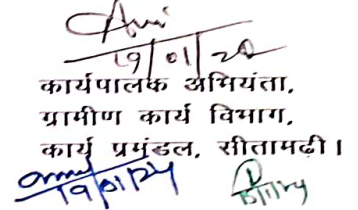 19/01/20
कार्यपालक अभियंता,
ग्रामीण कार्य विभाग,
कार्य प्रमंडल, सीतामढ़ी।
19/01/24